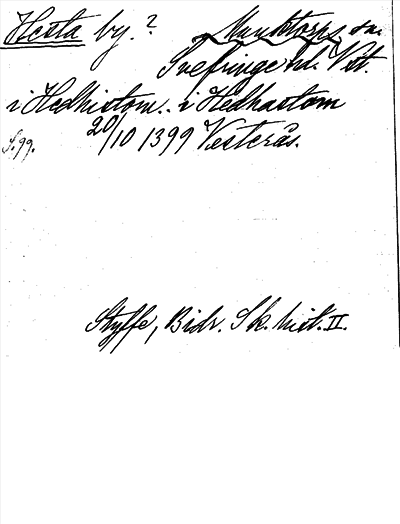 Hesta by.? Munktorps sn.
Svefringe hd. Vstt.
i Hedhistom.. i Hedhastom
20/10 1399 Vesterås.
S. 99.
Styffe, Bidr. Sk. hist. II.